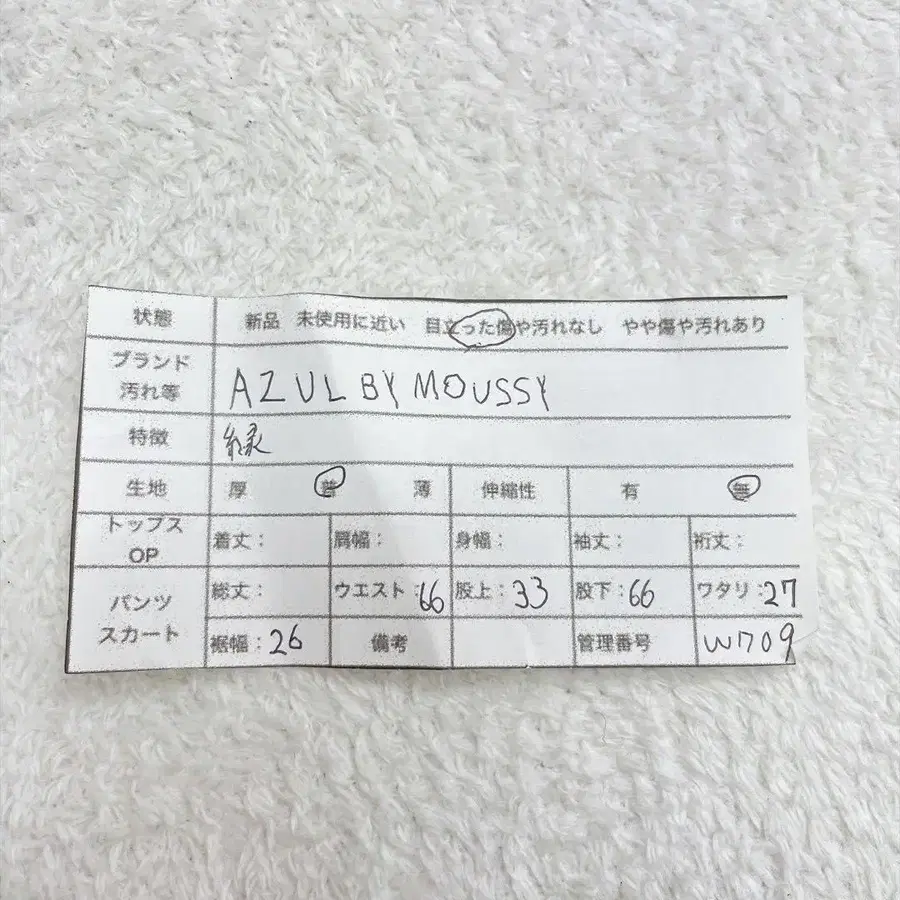 状態 新品 未使用に近い 目立った傷や汚れなし やや傷や汚れあり
ブランド
汚れ等 AZUL BY MOUSSY
特徴 緑
生地 厚 普 薄 伸縮性 有 無
トップス
OP 着丈: 肩幅: 身幅: 袖丈: 裄丈:
パンツ
スカート 総丈: ウエスト:66 股上:33 股下:66 ワタリ:27
裾幅:26 備考 管理番号 W709